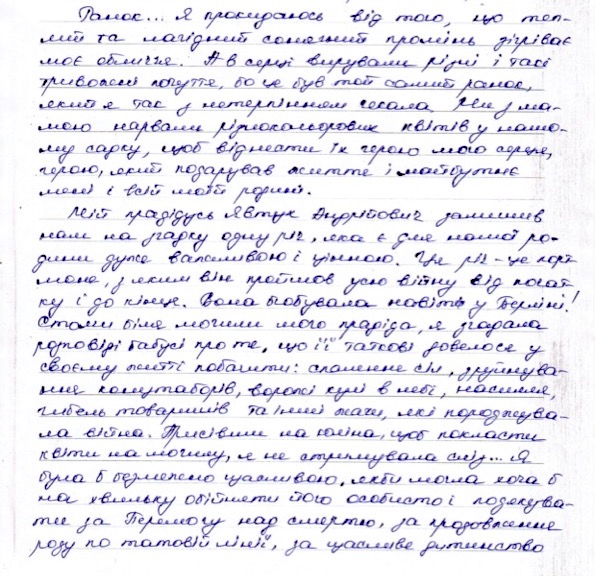 Ранок... Я прокидаюсь від того, що теп-
лий та лагідний сонячний промінь зігріває
моє обличчя. А в серці вирували різні і такі
тривожні почуття, бо це був той самий ранок,
який я так з нетерпінням чекала. Ми з ма-
мою нарвали різнокольорових квітів у нашо-
му садку, щоб віднести їх герою мого серця,
герою, який подарував життя і майбутнє
мені і всій моїй родині.
Мій прадідусь Явтух Андрійович залишив
нам на згадку одну річ, яка є для нашої ро-
дини дуже важливою і цінною. Ця річ - це порт
моне, з яким він пройшов усю війну від почат
ку і до кінця. Вона побувала навіть у Берліні!
Стоячи біля могили мого прадіда, я згадала
розповіді бабусі про те, що її таткові довелося у
своєму житті побачити: спалення сіл, зруйнува-
ння комутаборів, ворожі кулі в небі, насилля,
гибель товаришів та інші жахи, які породжува-
ла війна. Присівши на коліна, щоб покласти
квіти на могилу, я не стримувала сліз... Я
була б безмежно щасливою, якби могла хоча б
на хвильку обійняти його особисто і подякува-
ти за Перемогу над смертю, за продовження
роду по татовій лінії, за щасливе дитинство